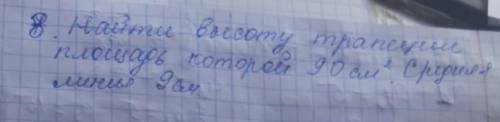 8. Найти высоту трапеции
площадь которой 90 см². Средняя
линия 9 см